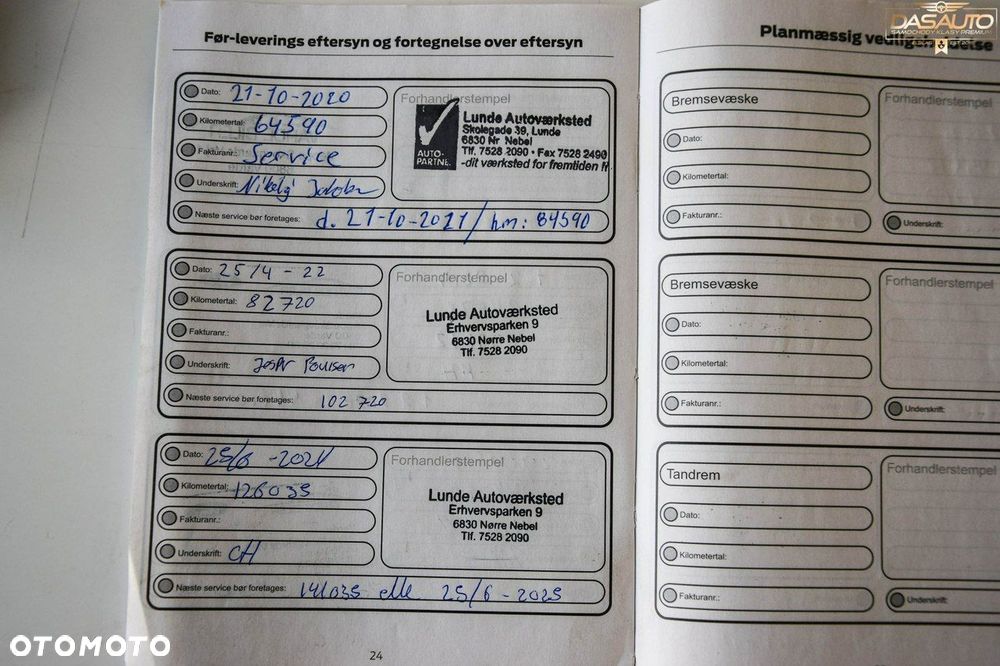 DASAUTO
SAMOCHODY KLASY PREMIUM
Før-leverings eftersyn og fortegnelse over eftersyn
Dato: 21-10-2020
Kilometertal: 64590
Fakturanr.: Service
Underskrift:
Næste service bør foretages: d. 21-10-2021/km: 84590
Forhandlerstempel
AUTO-
PARTNE.
Lunde Autoværksted
Skolegade 39, Lunde
6830 Nr Nebel
Tlf. 7528 2090 • Fax 7528 2490
-dit værksted for fremtiden
Dato: 25/4 - 22
Kilometertal: 82720
Fakturanr.:
Underskrift: Jesper Poulsen
Næste service bør foretages: 102 720
Forhandlerstempel
Lunde Autoværksted
Erhvervsparken 9
6830 Nørre Nebel
Tlf. 7528 2090
Dato: 25/6 - 2024
Kilometertal: 126035
Fakturanr.:
Underskrift: CH
Næste service bør foretages: 141035 elle 25/6 - 2025
Forhandlerstempel
Lunde Autoværksted
Erhvervsparken 9
6830 Nørre Nebel
Tlf. 7528 2090
24
Planmæssig
Bremsevæske
Dato:
Kilometertal:
Fakturanr.:
Forhandlerstempel
Underskrift:
Bremsevæske
Dato:
Kilometertal:
Fakturanr.:
Forhandlerstempel
Underskrift:
Tandrem
Dato:
Kilometertal:
Fakturanr.:
Forhandlerstempel
Underskrift:
OTOMOTO